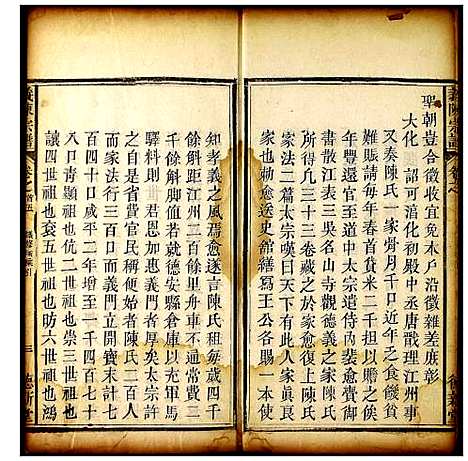 聖朝豈合徵收宜免本戶沿徵雜差庶彰
大化 詔可淳化初殿中丞唐戩理江州事
又奏陳氏一家骨月千口近年之食饑貧
難賑請每年春首貸米二千石以贍之俟
年豐還官至中太宗遣侍內裴愈賫御
書散江表三吳名山寺觀德義之家陳氏
所得凡三十三卷藏之於家愈復上陳氏
家法二篇太宗嘆曰天下有此人家真良
家也勅愈送史舘繕寫王公各賜一本使
義陳宗譜
卷之首五
三
德新堂
知孝義之風焉愈遂言陳氏租每歲四千
餘斛距江州三百里
千餘斛脚值若就德安縣倉庫以充軍馬
驛料則 君恩加惠義門者厚矣太宗許
之自是省費官民稱便始者陳氏二百人
而家法行三百口而義門立開寶末計七
百四十口咸平二年增至一千四百七十
八口以上世祖
一世顯祖也伉二世祖也崇三世祖也
讓四世祖也袞五世祖也昉六世祖也鴻